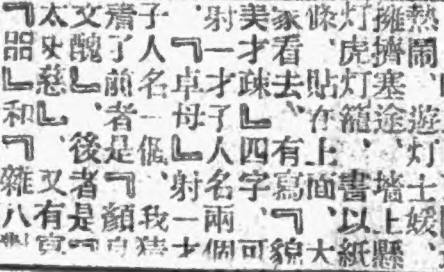 熱鬧、遊灯士媛、
擁擠塞途、墻上懸
灯虎灯籠、書以紙
條、貼在上面、大
家看去、有寫『貌
美才疎』四字、可
射一才子人名兩個
、『卓母』射一才
子人名一個、我猜
了前者是『顏
文醜』、後者是『
太史慈』、又有寫
『品』和『雜八